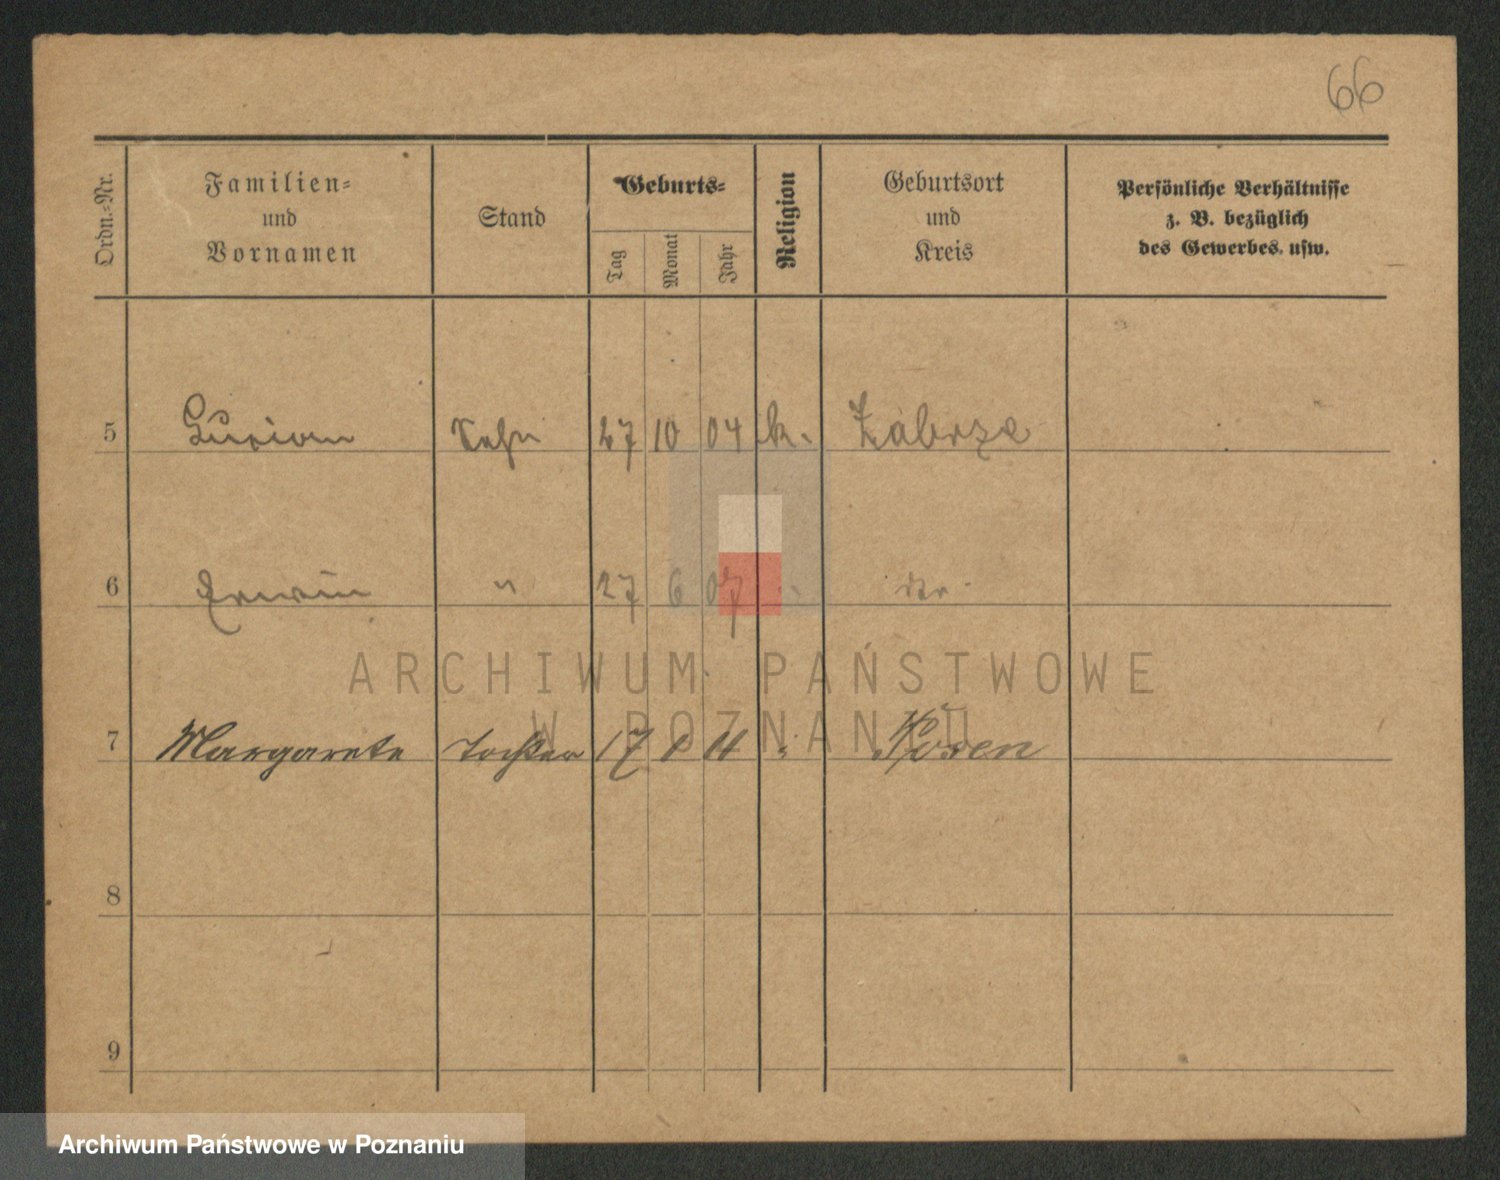 66
Ordn.-Nr.
Familien-
und
Vornamen
Stand
Geburts-
Tag
Monat
Jahr
Religion
Geburtsort
und
Kreis
Persönliche Verhältnisse
z. B. bezüglich
des Gewerbes usw.
5 Lucian Sohn 27 10 04 k. Zabrze
6 Erwin " 27 6 07 "
ARCHIWUM PAŃSTWOWE
W POZNANIU
7 Margarete Tochter 17 1 11 " Posen
8
9
Archiwum Państwowe w Poznaniu